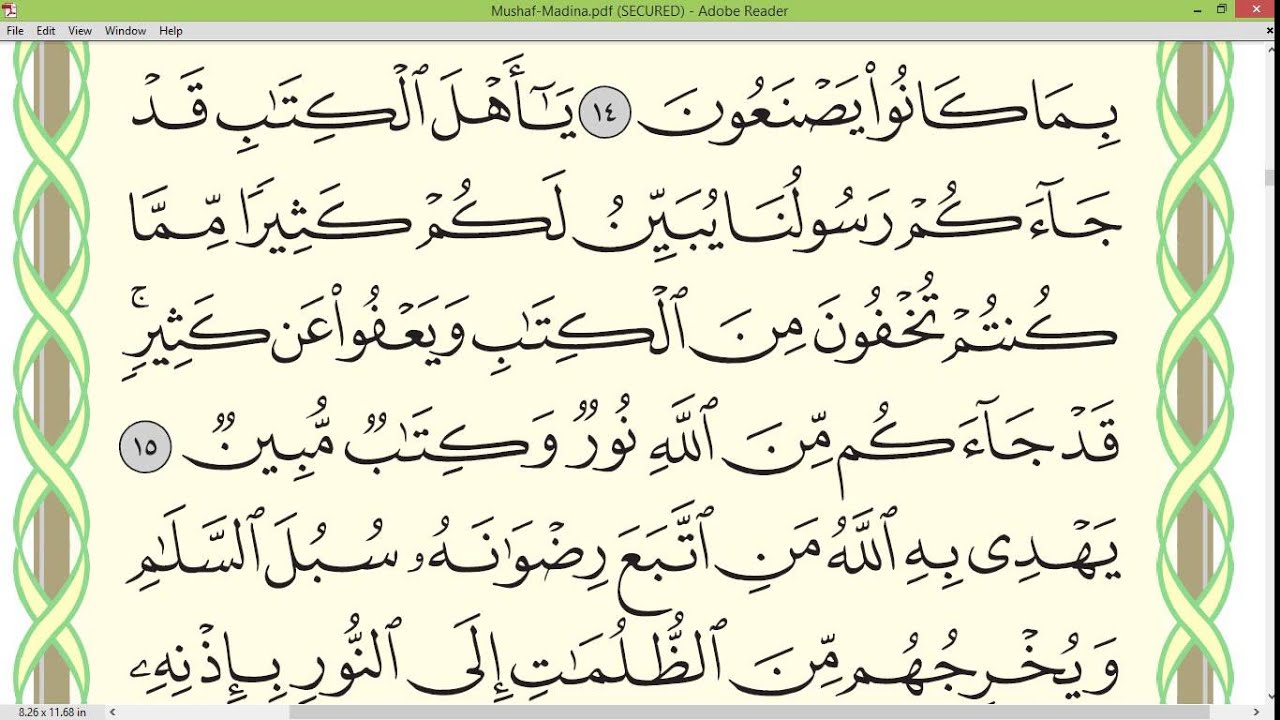 Mushaf-Madina.pdf (SECURED) - Adobe Reader
File Edit View Window Help
بِمَا كَانُوا۟ يَصْنَعُونَ ١٤ يَـٰٓأَهْلَ ٱلْكِتَـٰبِ قَدْ
جَآءَكُمْ رَسُولُنَا يُبَيِّنُ لَكُمْ كَثِيرًا مِّمَّا
كُنتُمْ تُخْفُونَ مِنَ ٱلْكِتَـٰبِ وَيَعْفُوا۟ عَن كَثِيرٍ ۚ
قَدْ جَآءَكُم مِّنَ ٱللَّهِ نُورٌ وَكِتَـٰبٌ مُّبِينٌ ١٥
يَهْدِى بِهِ ٱللَّهُ مَنِ ٱتَّبَعَ رِضْوَٰنَهُۥ سُبُلَ ٱلسَّلَـٰمِ
وَيُخْرِجُهُم مِّنَ ٱلظُّلُمَـٰتِ إِلَى ٱلنُّورِ بِإِذْنِهِۦ
8.26 x 11.68 in